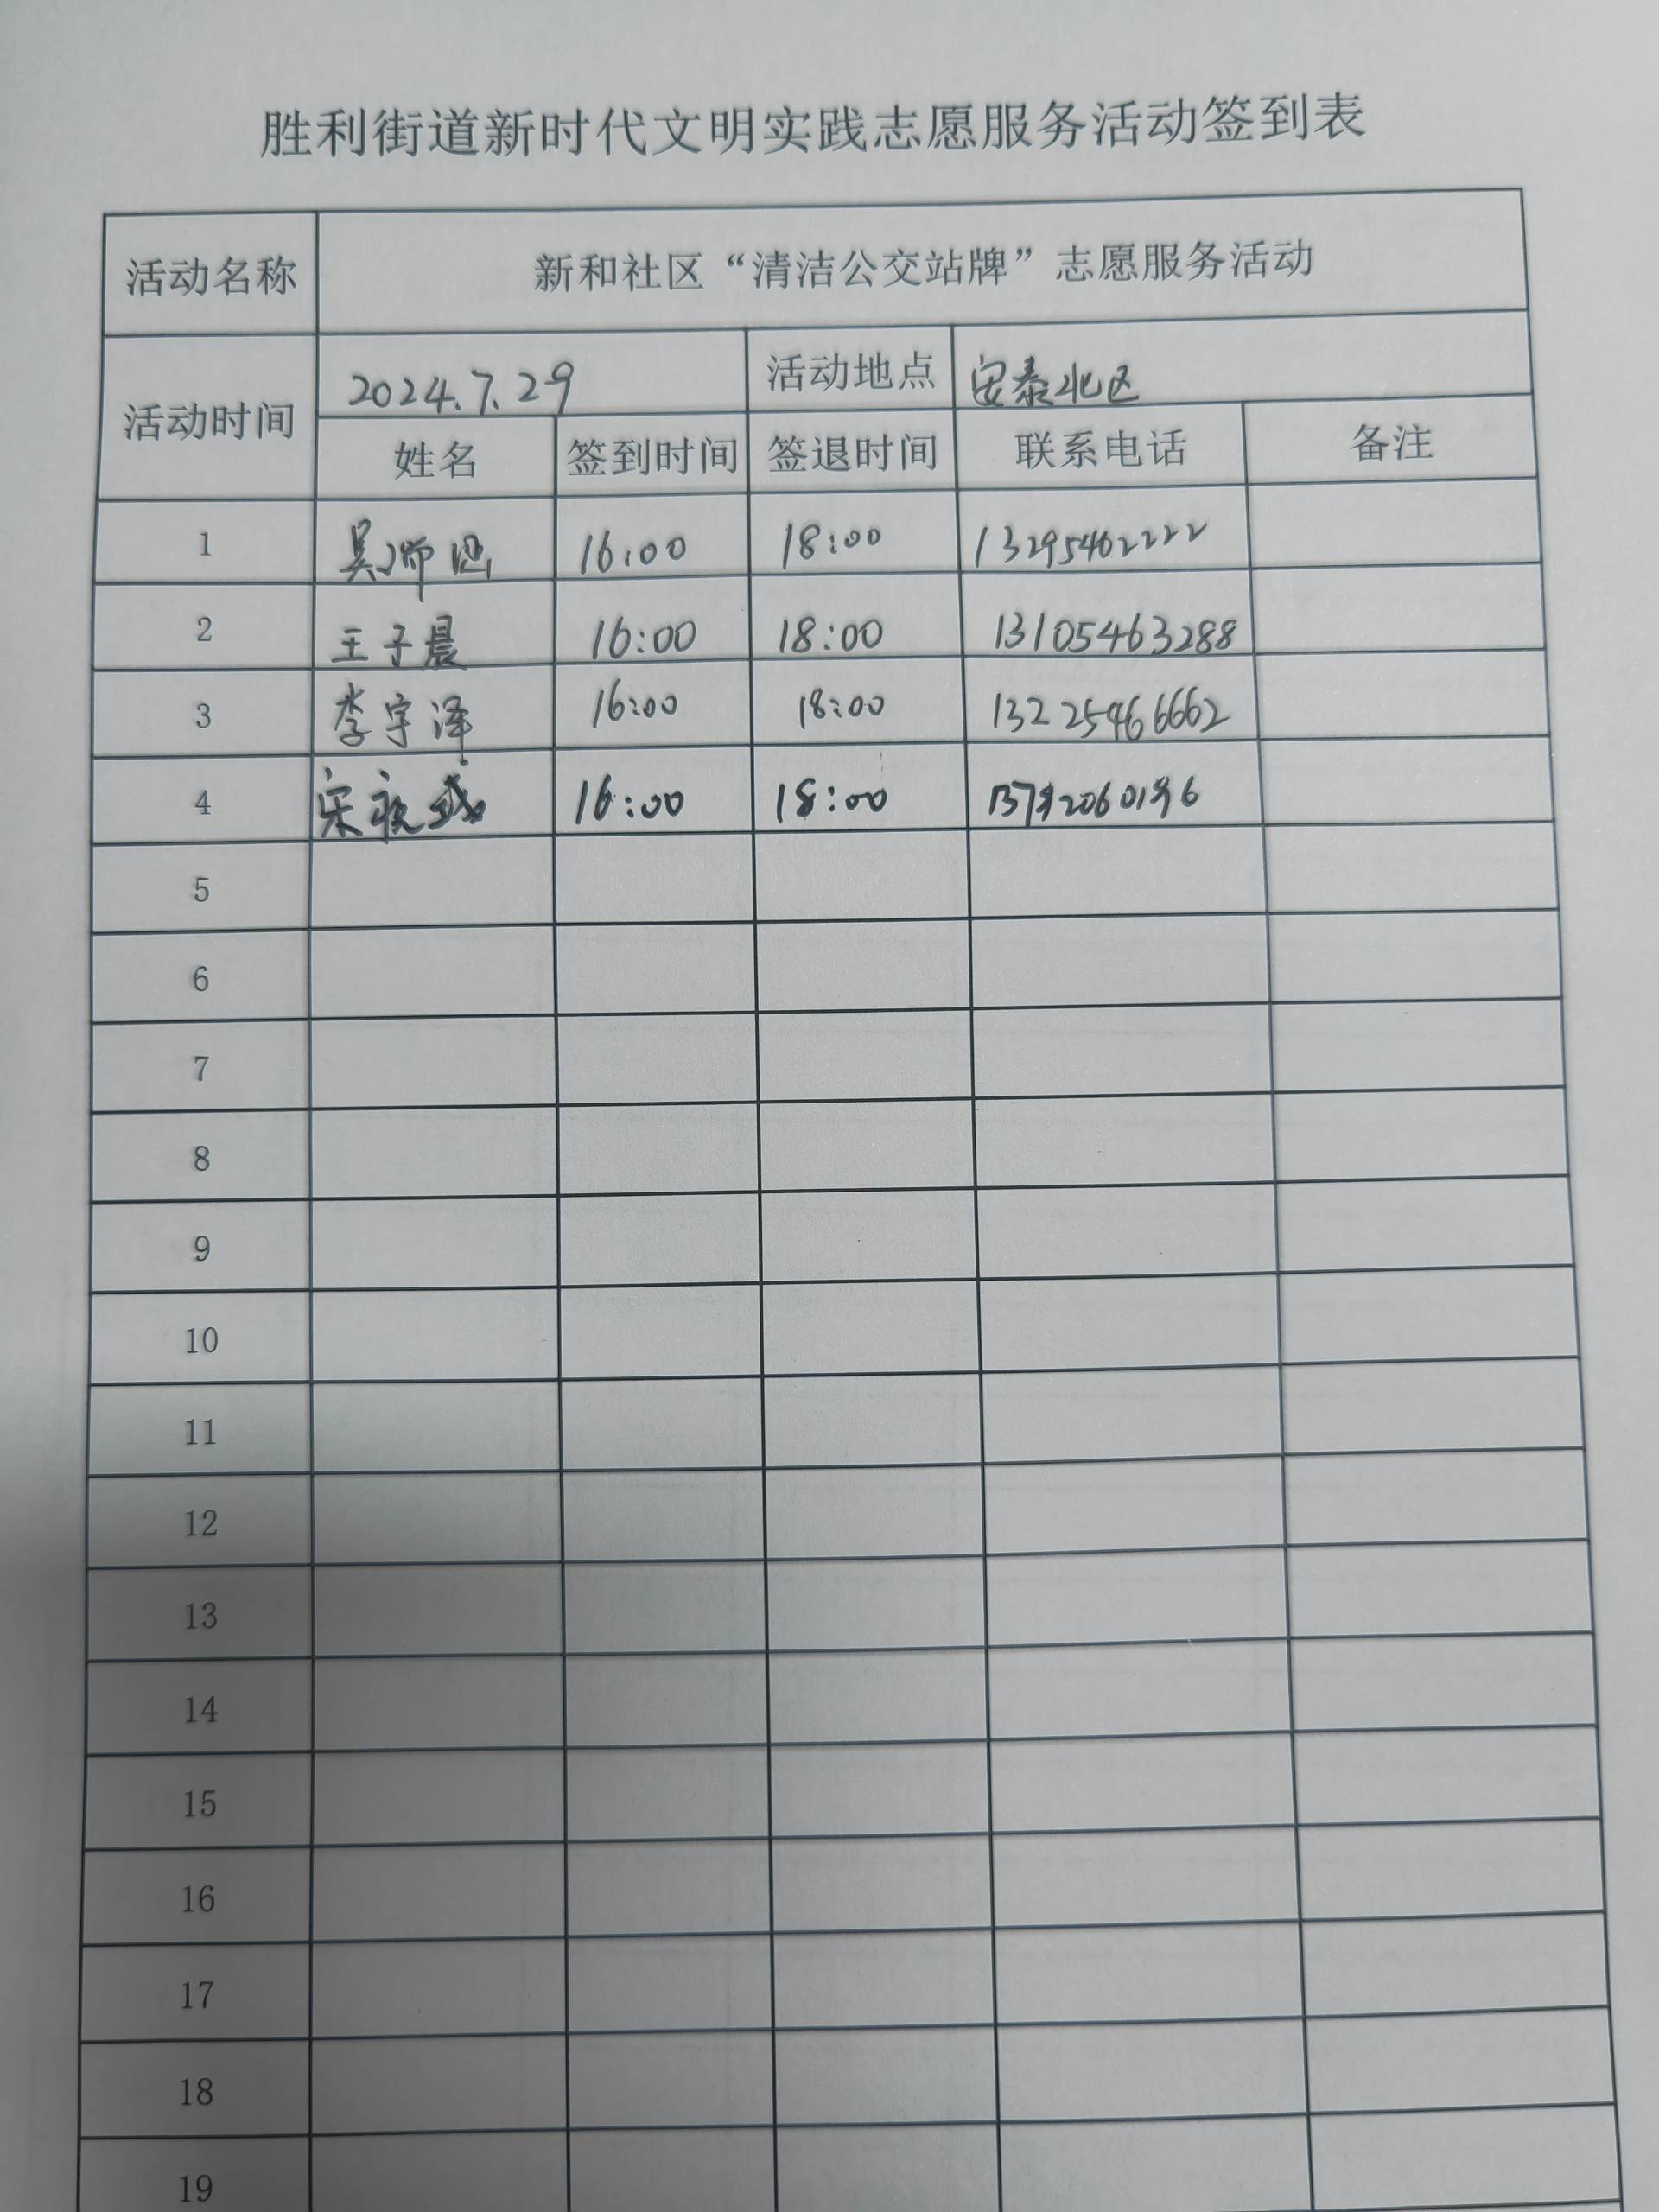 胜利街道新时代文明实践志愿服务活动签到表
活动名称 新和社区“清洁公交站牌”志愿服务活动
活动时间 2024.7.29 活动地点 安泰北区
姓名 签到时间 签退时间 联系电话 备注
1 吴师 16:00 18:00 13295462222
2 王子晨 16:00 18:00 13105463288
3 李宇泽 16:00 18:00 13225466662
4 宋 16:00 18:00
5
6
7
8
9
10
11
12
13
14
15
16
17
18
19